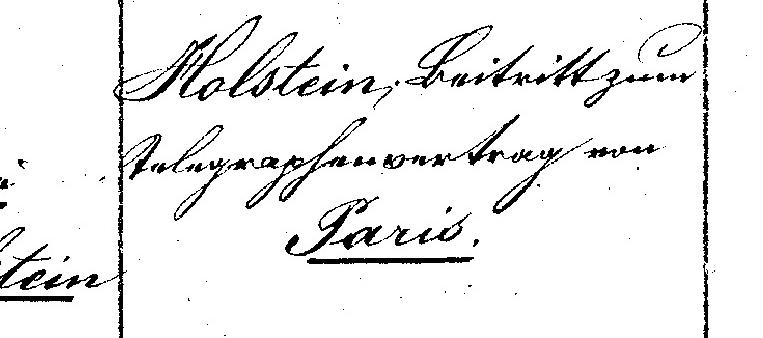 Holstein, Beitritt zum
Telegraphenvertrag von
Paris.
tein